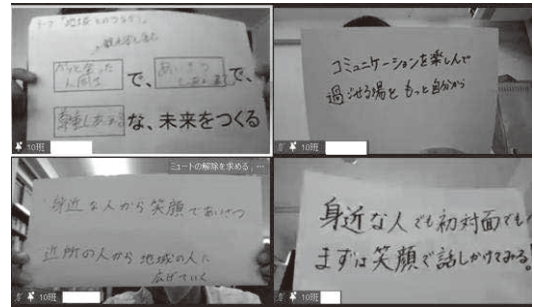 テーマ「地域とのつながり」
で、あいさつ
しあえるで、
尊重しあえるな、未来をつくる
10班
コミュニケーションを楽しんで
過ごせる場をもっと自分から
10班
ミュートの解除を求める …
身近な人から笑顔であいさつ
近所の人から地域の人に
広げていく
10班
身近な人でも初対面でも
まずは笑顔で話しかけてみる!
10班